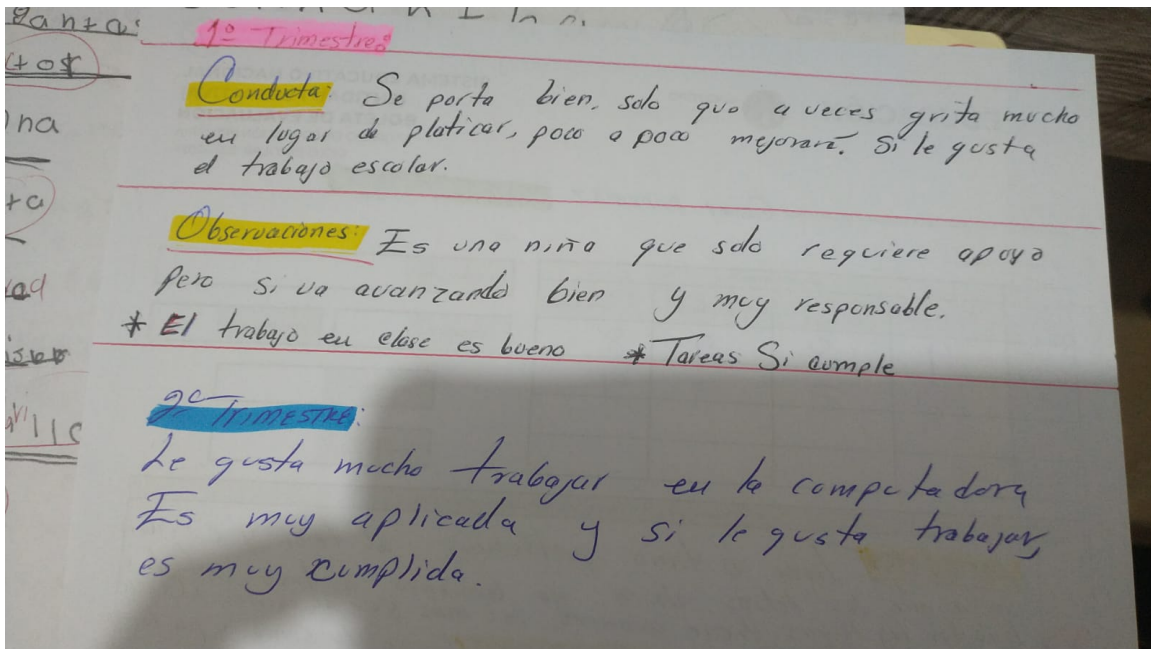 ganta:
1º Trimestre:
Conducta: Se porta bien, solo que a veces grita mucho
en lugar de platicar, poco a poco mejorará. Si le gusta
el trabajo escolar.
Observaciones: Es una niña que solo requiere apoyo
pero si va avanzando bien y muy responsable.
* El trabajo en clase es bueno * Tareas Si cumple
2º Trimestre:
Le gusta mucho trabajar en la computadora
Es muy aplicada y si le gusta trabajar,
es muy cumplida.